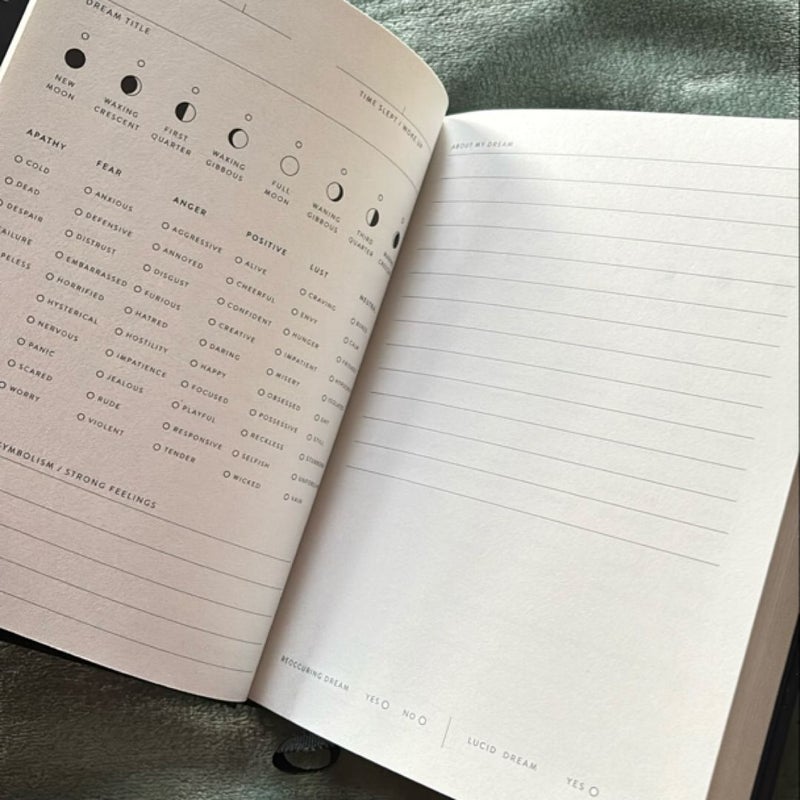 DREAM TITLE
TIME SLEPT / WOKE UP
NEW MOON
WAXING CRESCENT
FIRST QUARTER
WAXING GIBBOUS
FULL MOON
WANING GIBBOUS
THIRD QUARTER
APATHY
COLD
DEAD
DESPAIR
FEAR
ANXIOUS
DEFENSIVE
DISTRUST
EMBARRASSED
HORRIFIED
HYSTERICAL
NERVOUS
PANIC
SCARED
WORRY
ANGER
AGGRESSIVE
ANNOYED
DISGUST
FURIOUS
HATRED
HOSTILITY
IMPATIENCE
JEALOUS
RUDE
VIOLENT
POSITIVE
ALIVE
CHEERFUL
CONFIDENT
CREATIVE
DARING
HAPPY
FOCUSED
PLAYFUL
RESPONSIVE
TENDER
LUST
CRAVING
ENVY
HUNGER
IMPATIENT
MISERY
OBSESSED
POSSESSIVE
RECKLESS
SELFISH
WICKED
BORED
CALM
STILL
VAIN
SYMBOLISM / STRONG FEELINGS
ABOUT MY DREAM
REOCCURING DREAM YES NO
LUCID DREAM YES